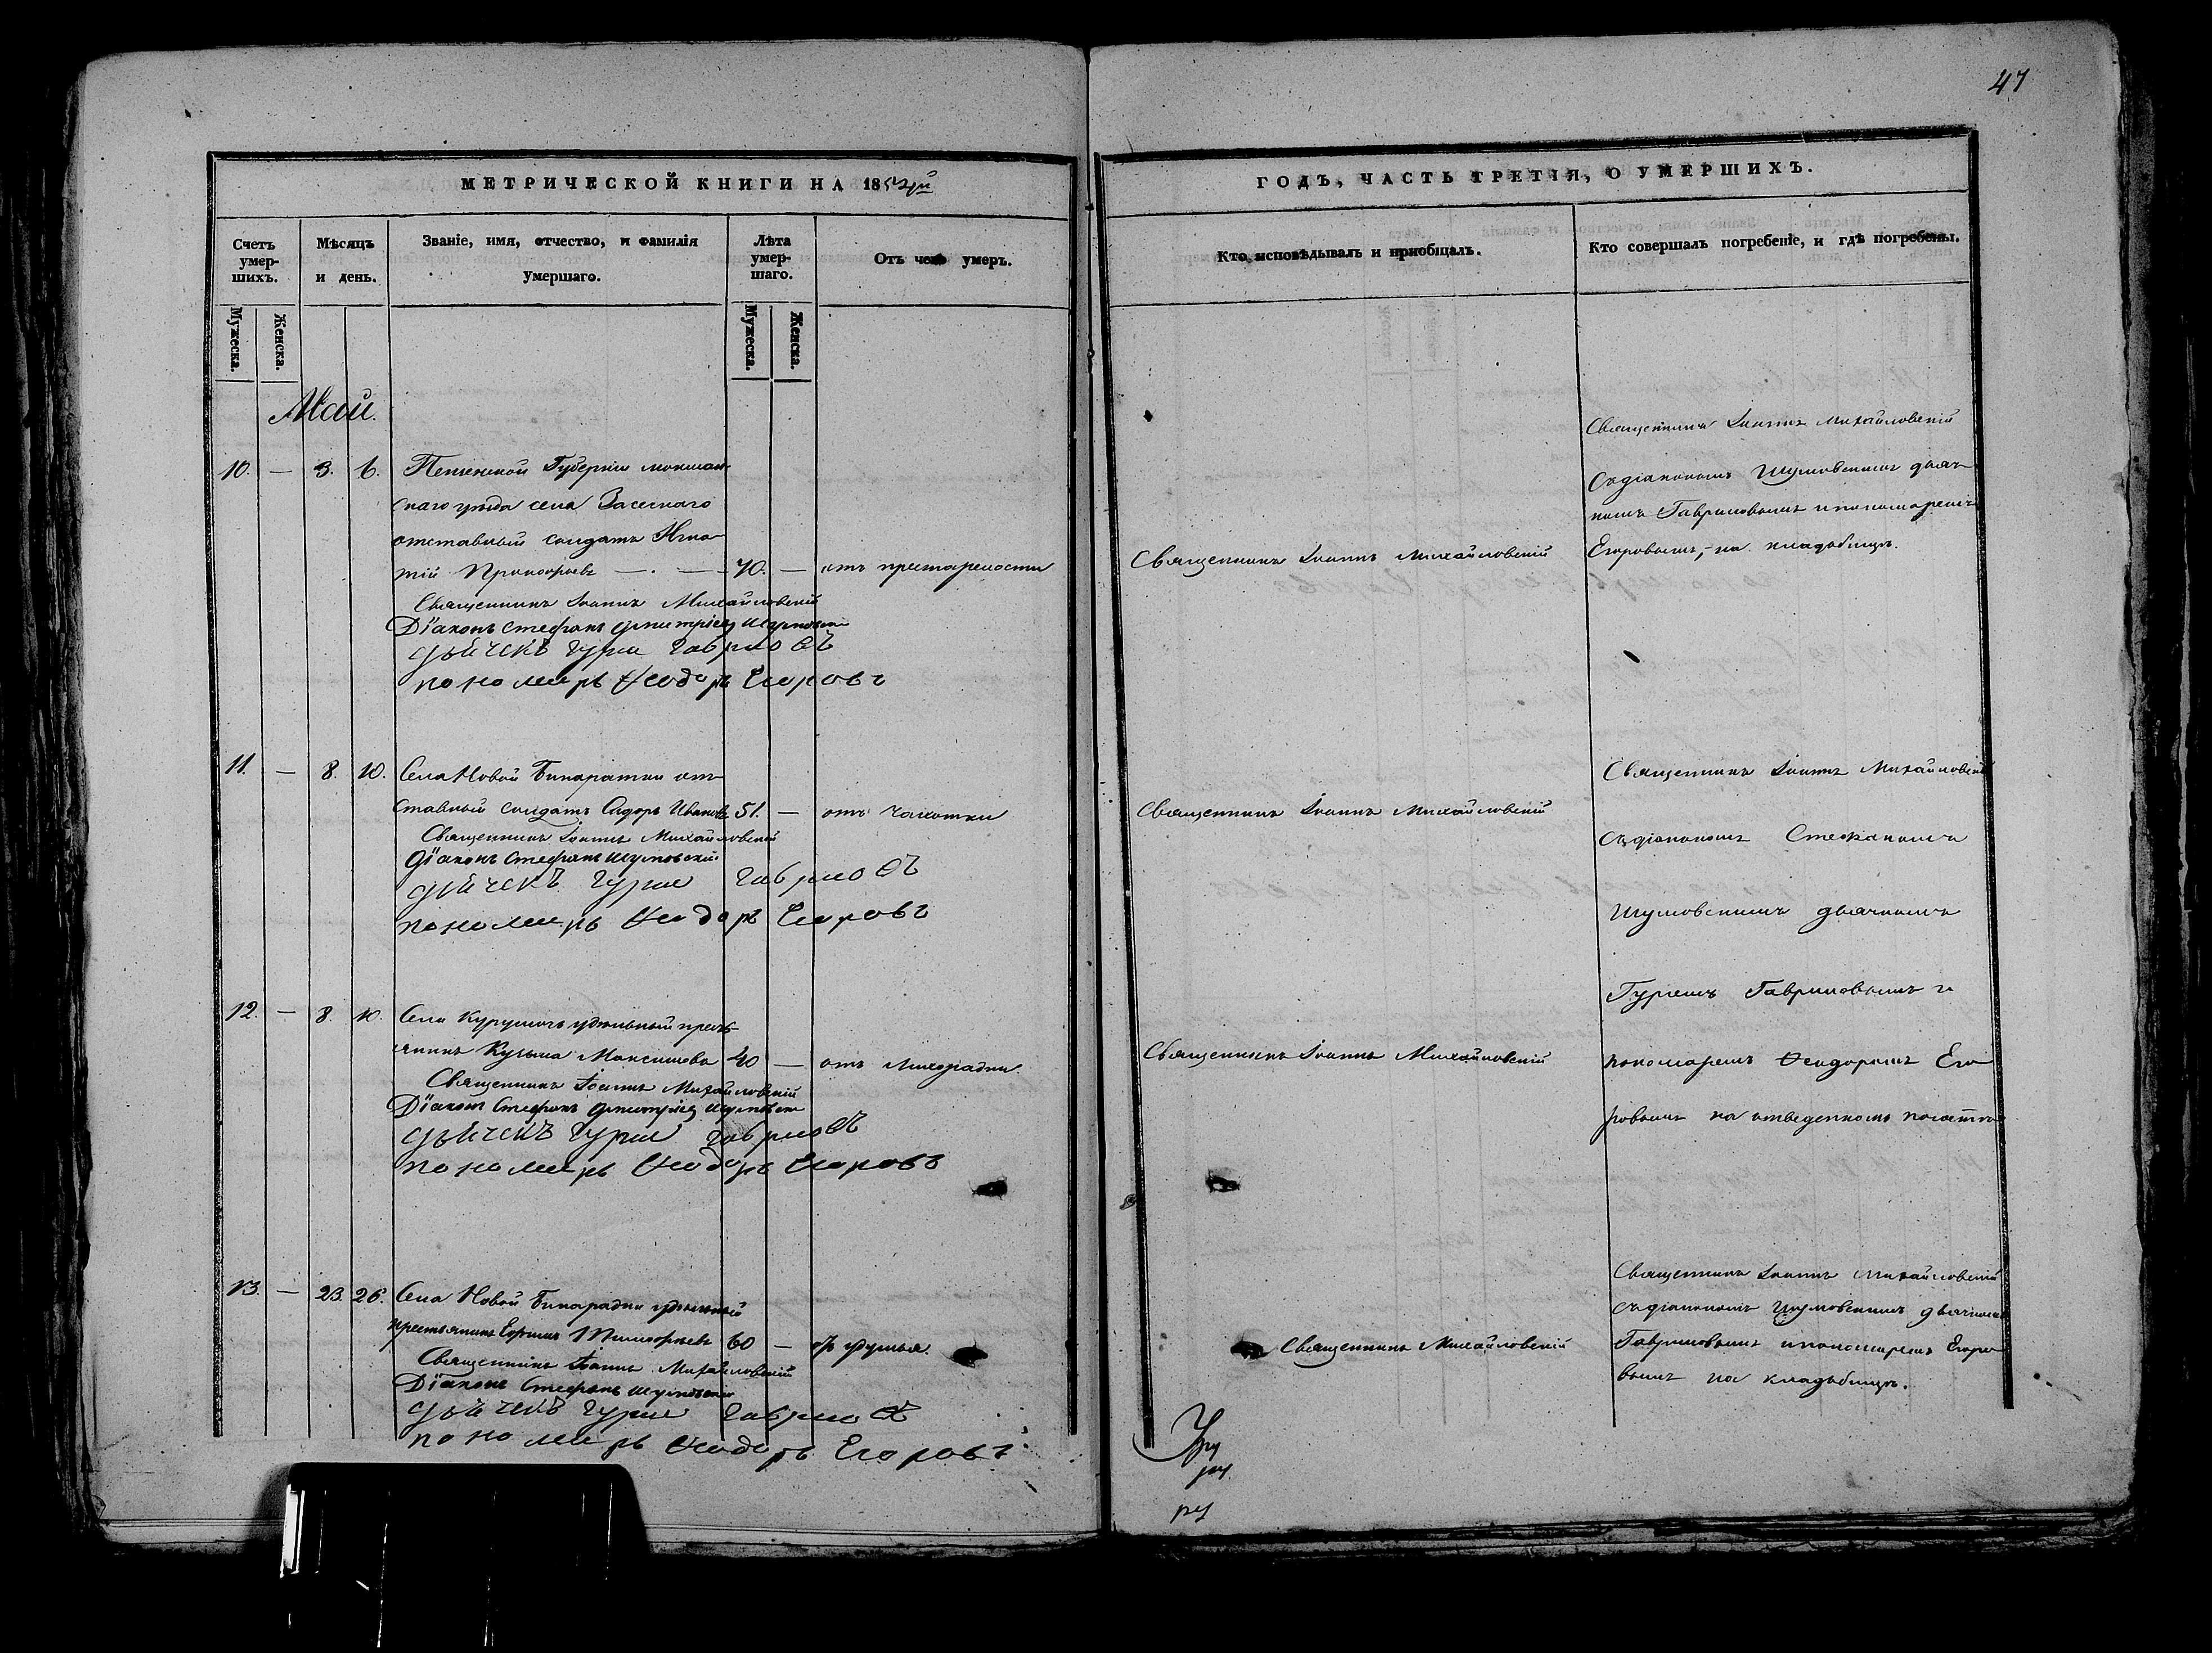 47
МЕТРИЧЕСКОЙ КНИГИ НА 1852й
ГОДЪ, ЧАСТЬ ТРЕТІЯ, О УМЕРШИХЪ.
Счетъ умер-шихъ.
Мѣсяцъ и день.
Званіе, имя, отчество, и фамилія умершаго.
Лѣта умер-шаго.
Отъ чего умеръ.
Кто исповѣдывалъ и приобщалъ.
Кто совершалъ погребеніе, и гдѣ погребены.
Мужеска.
Женска.
Мужеска.
Женска.
Май.
10. — 3. 6. Пензенской Губерніи мокшан-
скаго уѣзда села Засечнаго
отставный солдатъ Игна-
тій Прокофьевъ — . — 70. — отъ престарелости
Священникъ Іоаннъ Михайловскій
Діаконъ Стефанъ Дмитріев Шумовскій
дьячекъ Гурій Гавриловъ
пономарь Ѳеодоръ Егоровъ
Священникъ Іоаннъ Михайловскій
Священникъ Іоаннъ Михайловскій
Съ діакономъ Шумовскимъ дьяч-
комъ Гавриловымъ и пономаремъ
Егоровымъ, на кладбищѣ.
11. — 8. 10. Села Новой Бинаратки от-
ставный солдатъ Сидоръ Ивановъ 51. — отъ чахотки
Священникъ Іоаннъ Михайловскій
Діаконъ Стефанъ Шумовскій
дьячекъ Гурій Гавриловъ
пономарь Ѳеодоръ Егоровъ
Священникъ Іоаннъ Михайловскій
Священникъ Іоаннъ Михайловскій
Съ діакономъ Стефаномъ
Шумовскимъ дьячкомъ
Гуріемъ Гавриловымъ и
пономаремъ Ѳеодоромъ Его
ровымъ на отведенномъ
12. — 8. 10. Села Курумочъ удѣльный кресть-
янинъ Кузьма Максимовъ 40 — отъ лихорадки
Священникъ Іоаннъ Михайловскій
Діаконъ Стефанъ Дмитріев Шумовскій
дьячекъ Гурій Гавриловъ
пономарь Ѳеодоръ Егоровъ
Священникъ Іоаннъ Михайловскій
13. — 23. 26. Села Новой Бинарадки удѣльный
крестьянинъ Ефимъ Тимофѣевъ 60 — отъ удушья.
Священникъ Іоаннъ Михайловскій
Діаконъ Стефанъ Шумовскій
дьячекъ Гурій Гавриловъ
пономарь Ѳеодоръ Егоровъ
Священникъ Михайловскій
Священникъ Іоаннъ Михайловскій
Съ діакономъ Шумовскимъ дьячкомъ
Гавриловымъ и пономаремъ Егоро
вымъ на кладбищѣ.